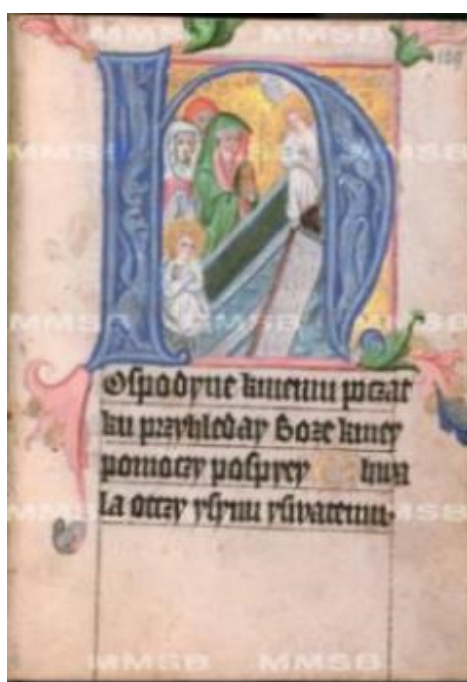 MMSB MMSB
Hoſpodyne kmemu poczat
ku przyhleday Boze kmey
pomoczy poſpyey Chwa
la otczy yſynu yſwatemu·
MMSB MMSB